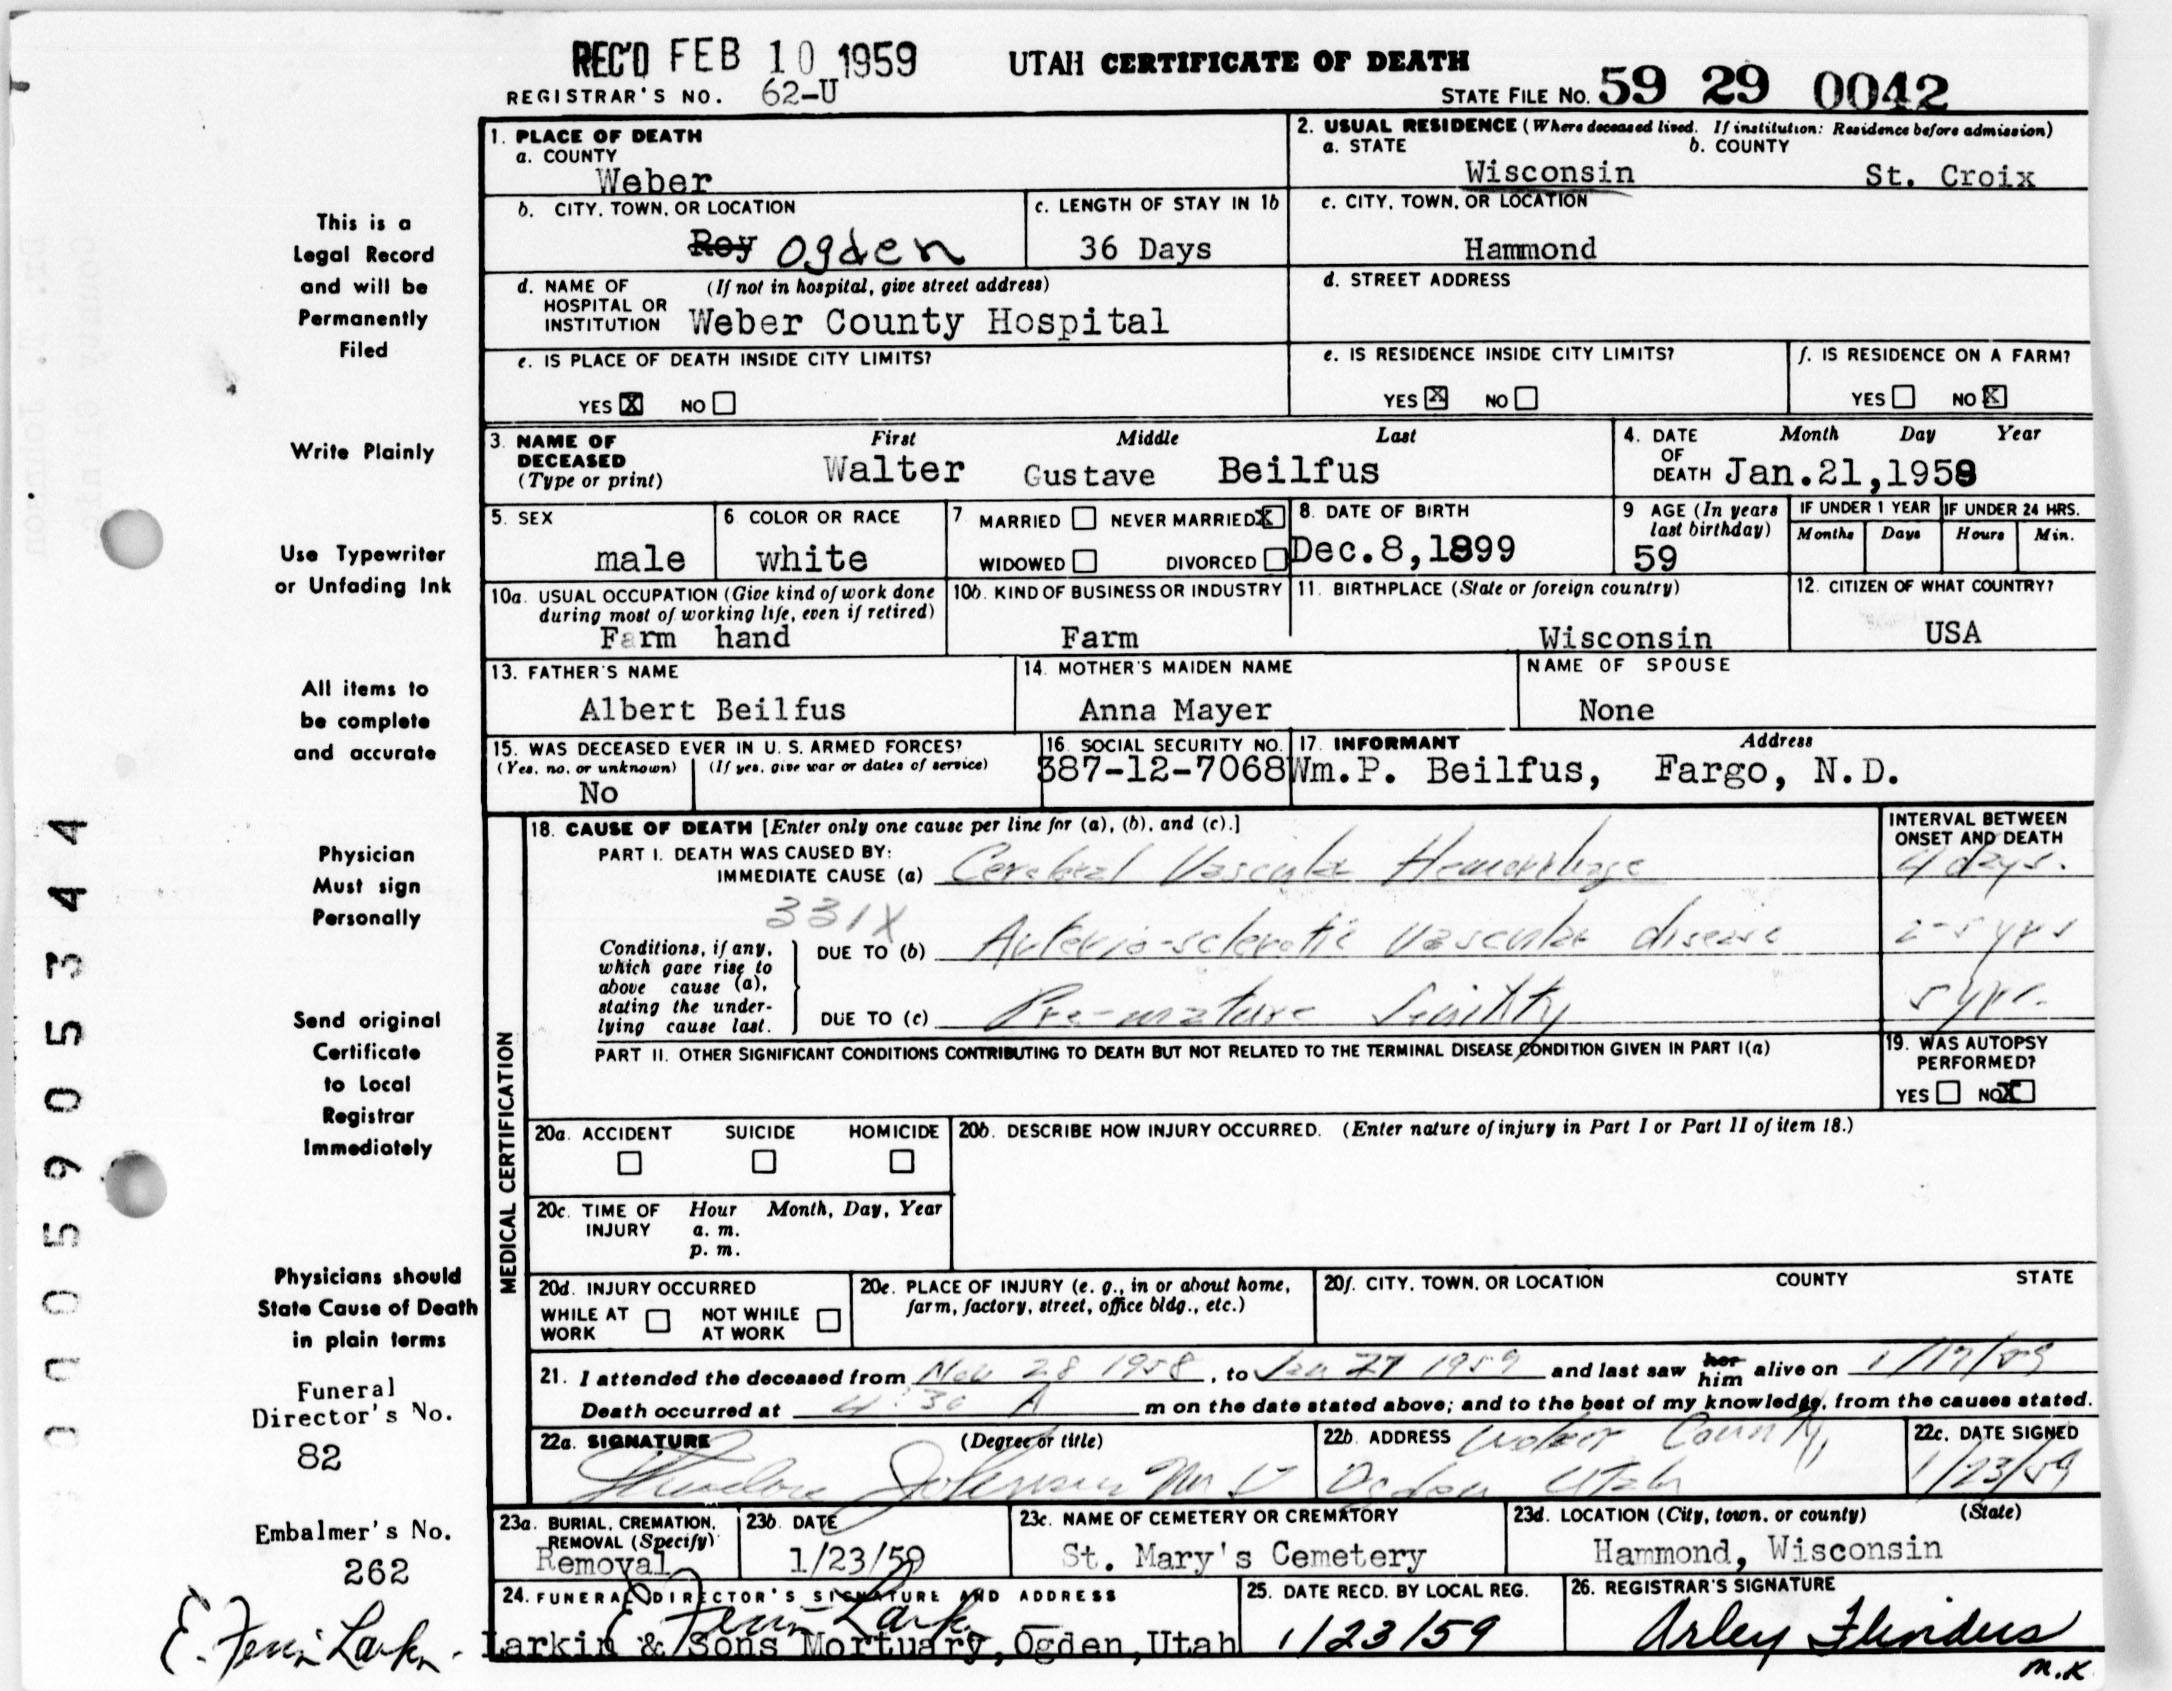 REC'D FEB 10 1959
UTAH CERTIFICATE OF DEATH
REGISTRAR'S NO. 62-U
STATE FILE No. 59 29 0042
1. PLACE OF DEATH
a. COUNTY
Weber
2. USUAL RESIDENCE (Where deceased lived. If institution: Residence before admission)
a. STATE b. COUNTY
Wisconsin St. Croix
b. CITY, TOWN, OR LOCATION
Roy Ogden
c. LENGTH OF STAY IN 1b
36 Days
c. CITY, TOWN, OR LOCATION
Hammond
d. NAME OF (If not in hospital, give street address)
HOSPITAL OR
INSTITUTION Weber County Hospital
d. STREET ADDRESS
e. IS PLACE OF DEATH INSIDE CITY LIMITS?
YES X NO
e. IS RESIDENCE INSIDE CITY LIMITS?
YES X NO
f. IS RESIDENCE ON A FARM?
YES NO X
3. NAME OF First Middle Last
DECEASED
(Type or print) Walter Gustave Beilfus
4. DATE Month Day Year
OF
DEATH Jan.21,1959
5. SEX
male
6 COLOR OR RACE
white
7 MARRIED NEVER MARRIED X
WIDOWED DIVORCED
8. DATE OF BIRTH
Dec.8,1899
9 AGE (In years
last birthday)
59
IF UNDER 1 YEAR IF UNDER 24 HRS.
Months Days Hours Min.
10a. USUAL OCCUPATION (Give kind of work done
during most of working life, even if retired)
Farm hand
10b. KIND OF BUSINESS OR INDUSTRY
Farm
11. BIRTHPLACE (State or foreign country)
Wisconsin
12. CITIZEN OF WHAT COUNTRY?
USA
13. FATHER'S NAME
Albert Beilfus
14. MOTHER'S MAIDEN NAME
Anna Mayer
NAME OF SPOUSE
None
15. WAS DECEASED EVER IN U. S. ARMED FORCES?
(Yes, no, or unknown) (If yes, give war or dates of service)
No
16. SOCIAL SECURITY NO.
387-12-7068
17. INFORMANT Address
Wm.P. Beilfus, Fargo, N.D.
MEDICAL CERTIFICATION
18. CAUSE OF DEATH [Enter only one cause per line for (a), (b), and (c).]
INTERVAL BETWEEN
ONSET AND DEATH
PART I. DEATH WAS CAUSED BY:
IMMEDIATE CAUSE (a) Cerebral Vascular Hemorrhage 4 days.
331X
Conditions, if any,
which gave rise to
above cause (a),
stating the under-
lying cause last.
DUE TO (b) Arterio-sclerotic vascular disease 2-5 yrs
DUE TO (c) Pre-mature Senility 5 yrs.
PART II. OTHER SIGNIFICANT CONDITIONS CONTRIBUTING TO DEATH BUT NOT RELATED TO THE TERMINAL DISEASE CONDITION GIVEN IN PART I(a)
19. WAS AUTOPSY
PERFORMED?
YES NO X
20a. ACCIDENT SUICIDE HOMICIDE
20b. DESCRIBE HOW INJURY OCCURRED. (Enter nature of injury in Part I or Part II of item 18.)
20c. TIME OF Hour Month, Day, Year
INJURY a. m.
p. m.
20d. INJURY OCCURRED
WHILE AT NOT WHILE
WORK AT WORK
20e. PLACE OF INJURY (e. g., in or about home,
farm, factory, street, office bldg., etc.)
20f. CITY, TOWN, OR LOCATION COUNTY STATE
21. I attended the deceased from Nov 28 1958, to Jan 21 1959 and last saw her him alive on 1/17/59
Death occurred at 4:30 A m on the date stated above; and to the best of my knowledge, from the causes stated.
22a. SIGNATURE (Degree or title)
Theodore Johnson M D
22b. ADDRESS Weber County
Ogden Utah
22c. DATE SIGNED
1/23/59
23a. BURIAL, CREMATION,
REMOVAL (Specify)
Removal
23b. DATE
1/23/59
23c. NAME OF CEMETERY OR CREMATORY
St. Mary's Cemetery
23d. LOCATION (City, town, or county) (State)
Hammond, Wisconsin
24. FUNERAL DIRECTOR'S SIGNATURE AND ADDRESS
Larkin & Sons Mortuary, Ogden, Utah
25. DATE RECD. BY LOCAL REG.
1/23/59
26. REGISTRAR'S SIGNATURE
Arley Flinders
M.K
This is a
Legal Record
and will be
Permanently
Filed
Write Plainly
Use Typewriter
or Unfading Ink
All items to
be complete
and accurate
Physician
Must sign
Personally
Send original
Certificate
to Local
Registrar
Immediately
Physicians should
State Cause of Death
in plain terms
Funeral
Director's No.
82
Embalmer's No.
262
E. Ferrin Larkin
0005905344